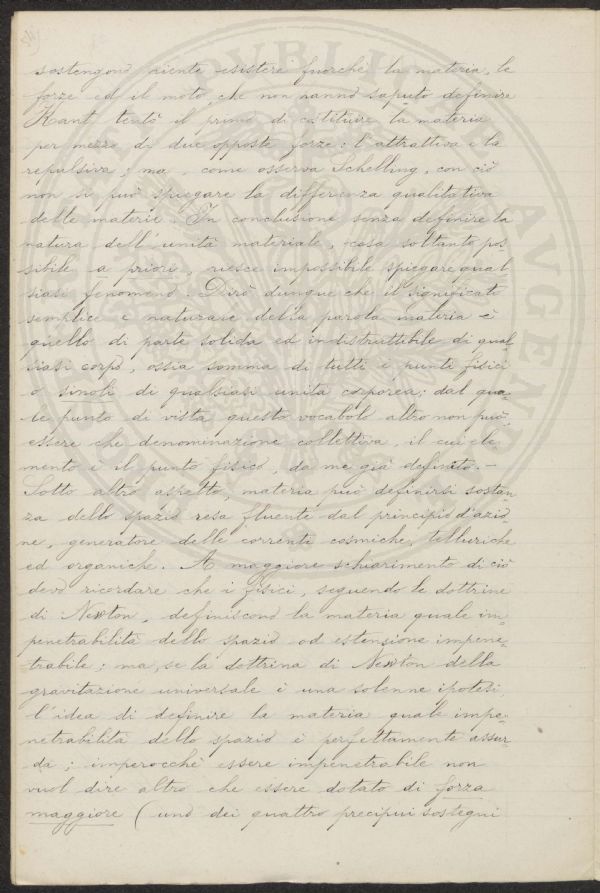 sostengono niente esistere fuorché la materia, le
forze ed il moto, che non hanno saputo definire
Kant tentò il primo di costituire la materia
per mezzo di due opposte forze: l'attrattiva e la
repulsiva; ma, come osserva Schelling, con ciò
non si può spiegare la differenza qualitativa
delle materie. In conclusione senza definire la
natura dell'unità materiale, cosa soltanto pos-
sibile a priori, riesce impossibile spiegare qual
siasi fenomeno. Dirò dunque che il significato
semplice e naturale della parola materia è
quello di parte solida ed indistruttibile di qual
siasi corpo, ossia somma di tutti i punti fisici
o sinoli di qualsiasi unità corporea; dal qua-
le punto di vista questo vocabolo altro non può
essere che denominazione collettiva, il cui ele
mento è il punto fisico, da me già definito. -
Sotto altro aspetto, materia può definirsi sostan
za dello spazio resa fluente dal principio d'azio-
ne, generatore delle correnti cosmiche, telluriche
ed organiche. A maggiore schiarimento di ciò
devo ricordare che i fisici, seguendo le dottrine
di Newton, definiscono la materia quale im-
penetrabilità dello spazio od estensione impene-
trabile; ma, se la dottrina di Newton della
gravitazione universale è una solenne ipotesi,
l'idea di definire la materia quale impe-
netrabilità dello spazio è perfettamente assur-
da; imperocché essere impenetrabile non
vuol dire altro che essere dotato di forza
maggiore (uno dei quattro precipui sostegni